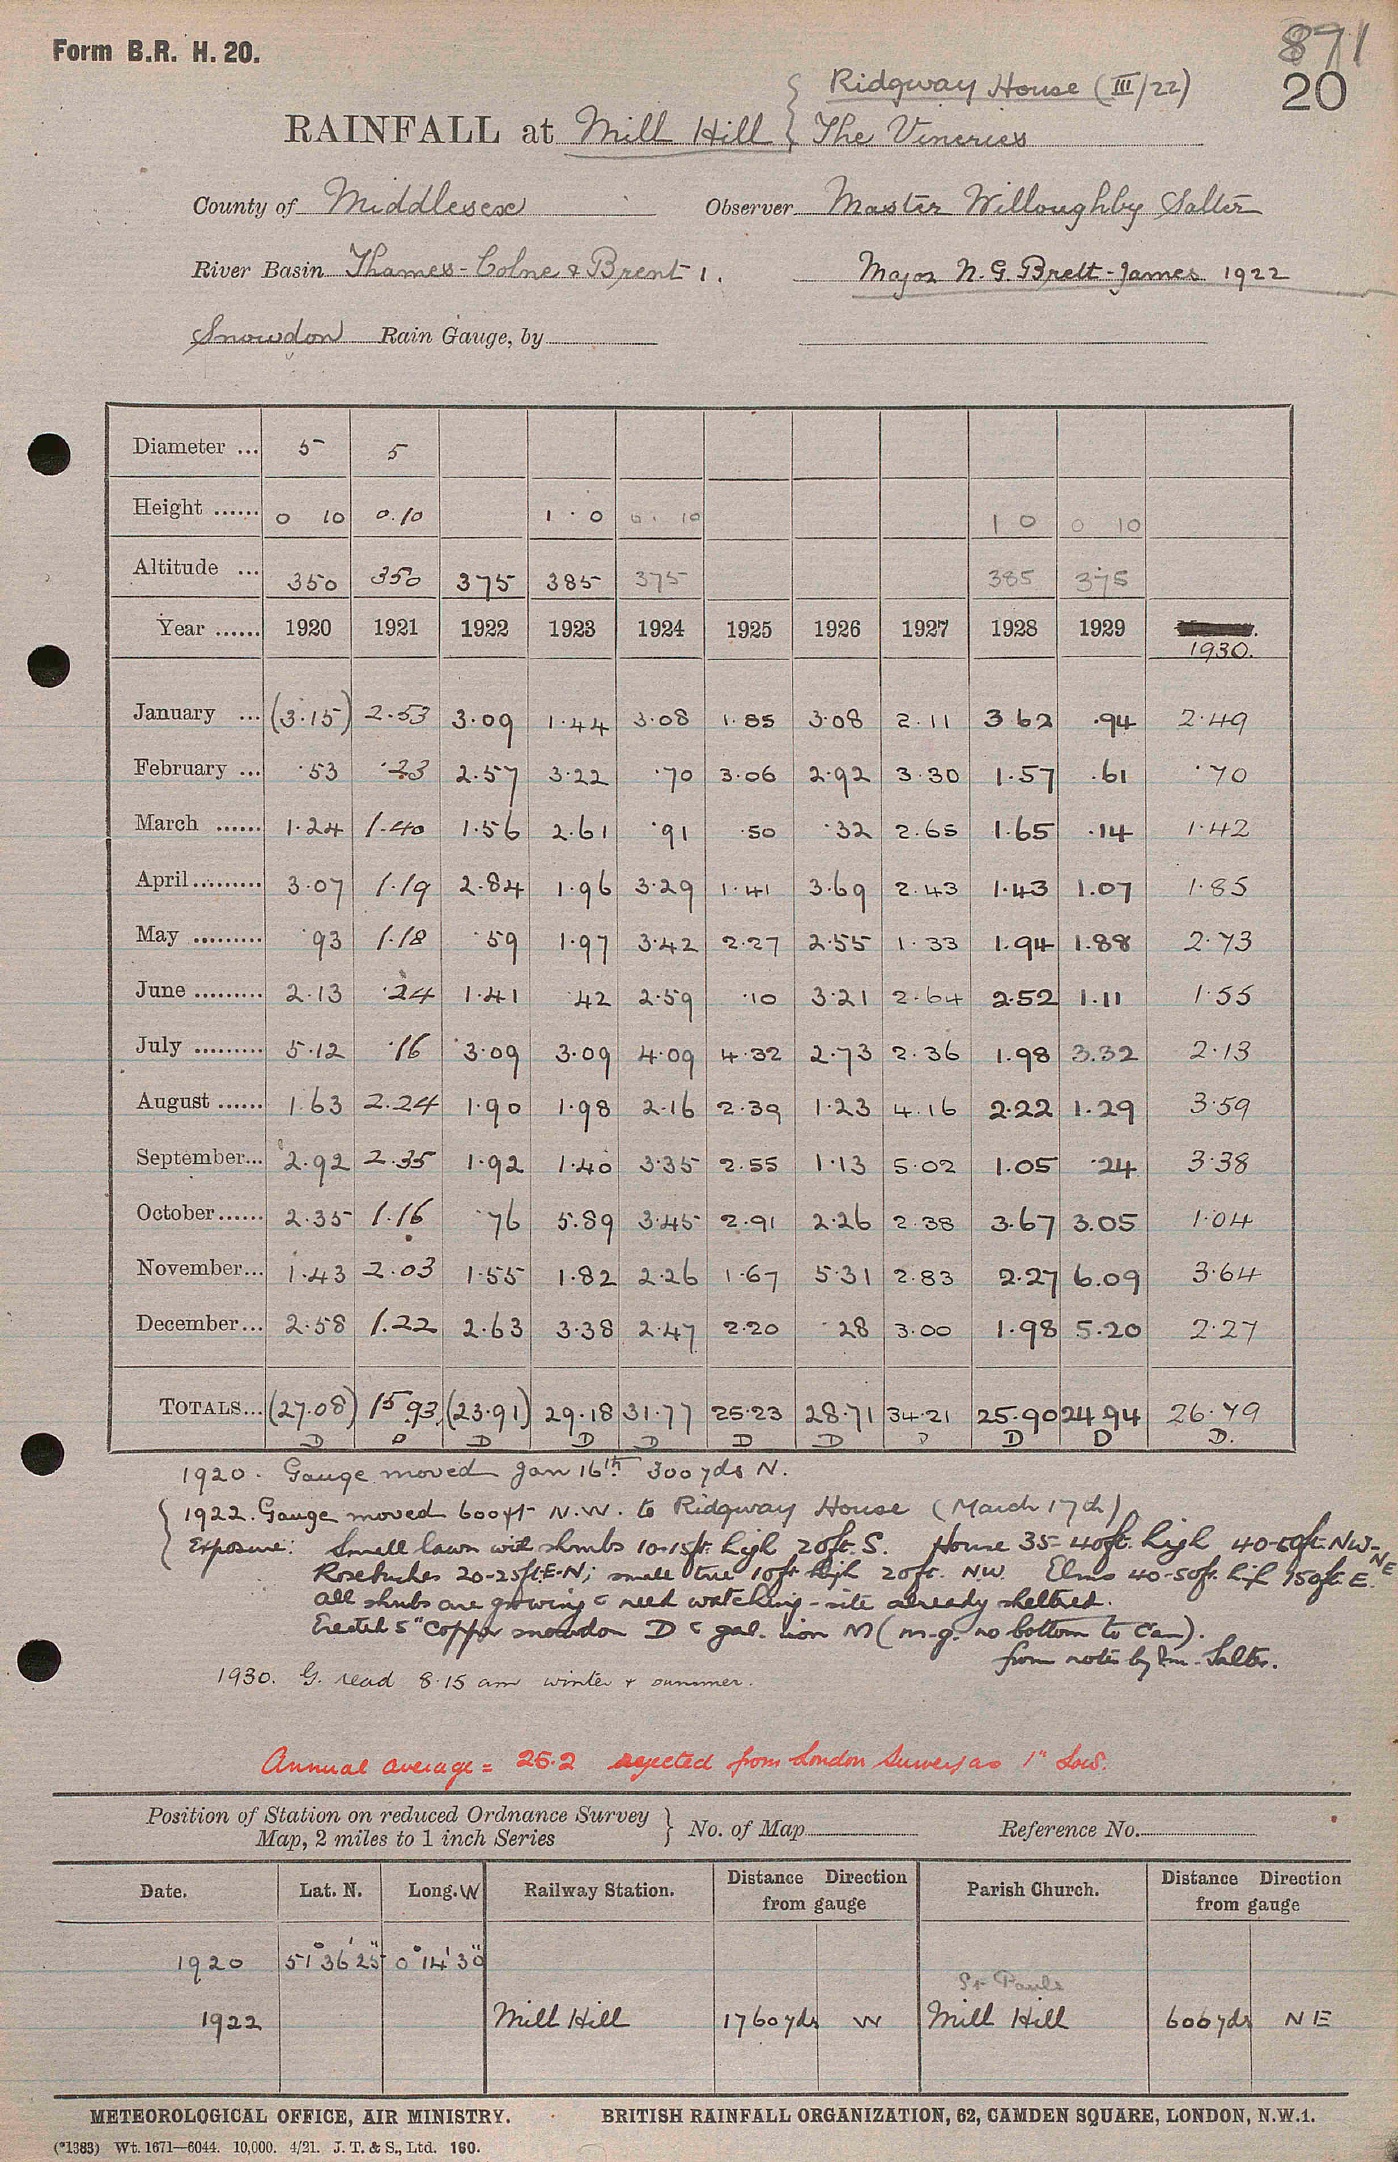 Form B.R. H. 20.
871
20
Ridgway House (III/22)
RAINFALL at Mill Hill { The Vineries
County of Middlesex Observer Master Willoughby Salter
River Basin Thames - Colne & Brent 1. Major N. G. Brett-James 1922
Snowdon Rain Gauge, by
Diameter ... 5 5
Height ...... 0 10 0.10 1 · 0 0 · 10 1 0 0 10
Altitude ... 350 350 375 385 375 385 375
Year ...... 1920 1921 1922 1923 1924 1925 1926 1927 1928 1929
1930.
January ... (3·15) 2·53 3·09 1·44 3·08 1·85 3·08 2·11 3 62 ·94 2·49
February ... ·53 ·23 2·57 3·22 ·70 3·06 2·92 3·30 1·57 ·61 ·70
March ...... 1·24 1·40 1·56 2·61 ·91 ·50 ·32 2·65 1·65 ·14 1·42
April ......... 3·07 1·19 2·84 1·96 3·29 1·41 3·69 2·43 1·43 1.07 1·85
May ......... ·93 1·18 ·59 1·97 3·42 2·27 2·55 1·33 1.94 1.88 2·73
June ......... 2·13 ·24 1·41 ·42 2·59 ·10 3·21 2·64 2·52 1.11 1·55
July ......... 5·12 ·16 3·09 3·09 4·09 4·32 2·73 2·36 1.98 3.32 2·13
August ...... 1·63 2·24 1·90 1·98 2·16 2·39 1·23 4·16 2·22 1·29 3·59
September... 2·92 2·35 1·92 1·40 3·35 2·55 1·13 5·02 1.05 ·24 3·38
October ...... 2·35 1·16 ·76 5·89 3·45 2·91 2·26 2·38 3·67 3.05 1·04
November... 1·43 2·03 1·55 1·82 2·26 1·67 5·31 2·83 2·27 6.09 3·64
December... 2·58 1·22 2·63 3·38 2·47 2·20 ·28 3·00 1·98 5·20 2·27
TOTALS... (27·08) 15 93 (23·91) 29·18 31·77 25·23 28·71 34·21 25·90 24 94 26·79
D D D D D D D D D D D.
1920. Gauge moved Jan 16th 300 yds N.
1922. Gauge moved 600 yds N.W. to Ridgway House (March 17th)
Exposure: Small lawn with shrubs 10-15ft. high 20ft. S. House 35-40ft. high 40-50ft. NW-NE
Rosebushes 20-25ft. E-N; small tree 10ft high 20ft. NW. Elms 40-50ft. high 150ft. E.
All shrubs are growing & need watching - site already sheltered.
Erected 5" Copper snowdon D c gal. iron M (m.g. no bottom to can).
from notes by Salter.
1930. G. read 8·15 am winter & summer.
Annual average = 25.2 rejected from London Survey as 1" low.
Position of Station on reduced Ordnance Survey
Map, 2 miles to 1 inch Series } No. of Map Reference No.
Date. Lat. N. Long. W Railway Station. Distance Direction from gauge Parish Church. Distance Direction from gauge
1920 51° 36' 25" 0° 14' 30"
St Pauls
1922 Mill Hill 1760 yds W Mill Hill 600 yds NE
METEOROLOGICAL OFFICE, AIR MINISTRY. BRITISH RAINFALL ORGANIZATION, 62, CAMDEN SQUARE, LONDON, N.W.1.
(*1383) Wt. 1671—6044. 10,000. 4/21. J. T. & S., Ltd. 160.